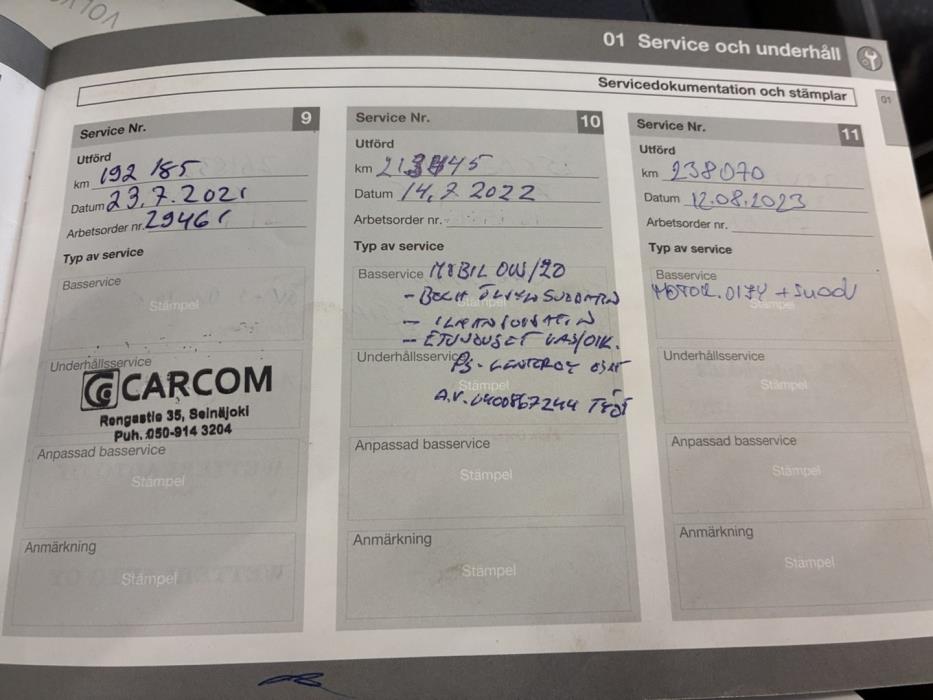 VOLV
01 Service och underhåll
Servicedokumentation och stämplar
01
Service Nr. 9
Utförd
km 192 185
Datum 23.7.2021
Arbetsorder nr. 29461
Typ av service
Basservice
Stämpel
Underhållsservice
CARCOM
Rengastie 35, Seinäjoki
Puh. 050-914 3204
Anpassad basservice
Stämpel
Anmärkning
Stämpel
Service Nr. 10
Utförd
km
Datum 14.7 2022
Arbetsorder nr.
Typ av service
Basservice MOBIL 0W/20
- BOSCH ÖLJYNSUODATIN
Stämpel
- ILMANSUODATIN
- ETUJOUSET VAS/OIK.
Underhållsservice
Stämpel
A.V. 0400867244 TYÖT
Anpassad basservice
Stämpel
Anmärkning
Stämpel
Service Nr. 11
Utförd
km 238070
Datum 12.08.2023
Arbetsorder nr.
Typ av service
Basservice
MOTOR.ÖLJY + SUOD
Stämpel
Underhållsservice
Stämpel
Anpassad basservice
Stämpel
Anmärkning
Stämpel